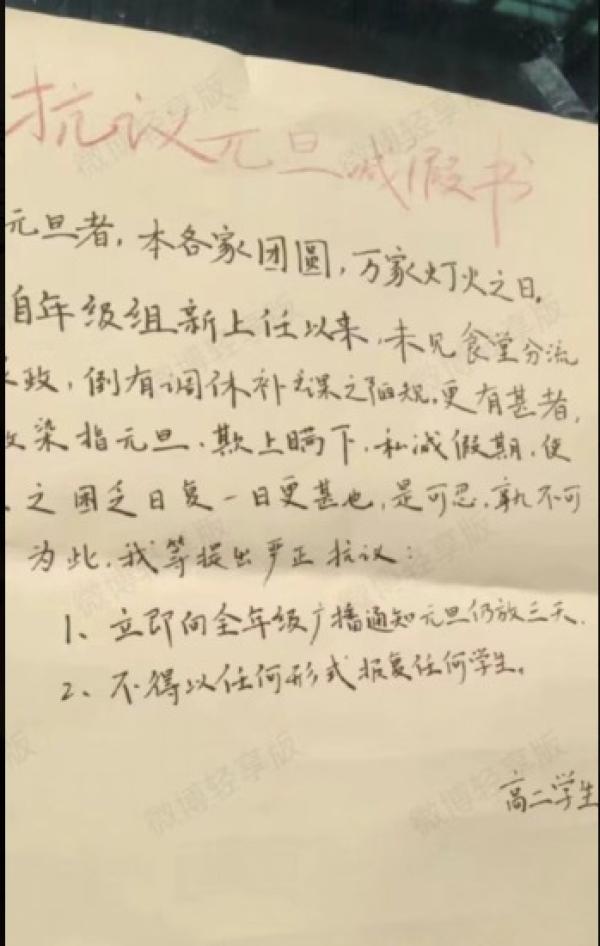 抗议元旦减假书
元旦者,本各家团圆,万家灯火之日。
自年级组新上任以来,未见食堂分流
政,倒有调休补课之陋规。更有甚者,
染指元旦,欺上瞒下,私减假期,使
之困乏日复一日更甚也,是可忍,孰不可
为此,我等提出严正抗议:
1、立即向全年级广播通知元旦仍放三天.
2、不得以任何形式报复任何学生。
高二学生
微博轻享版
微博轻享版
微博轻享版
微博轻享版
微博轻享版
微博轻享版